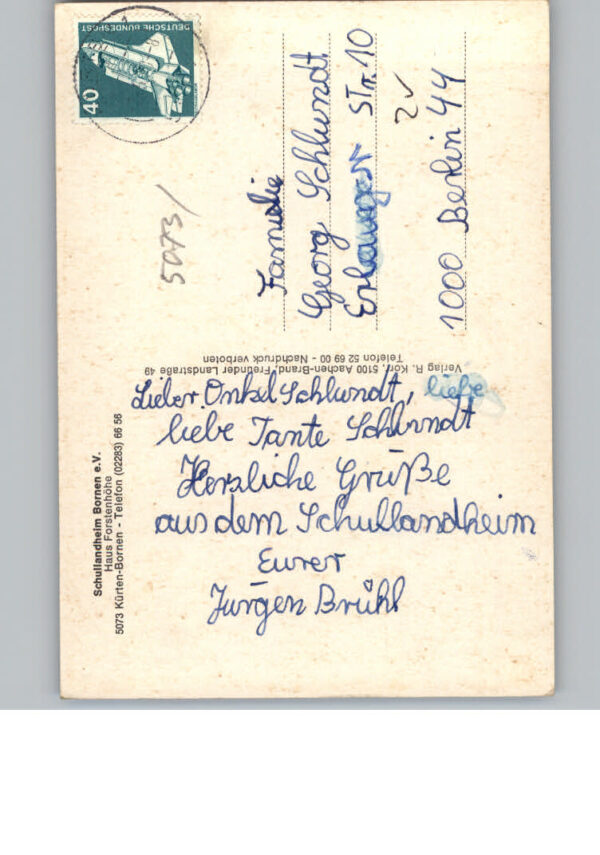 DEUTSCHE BUNDESPOST
40
5073/
Familie
Georg Schlundt
Erlanger Str. 10
1000 Berlin 44
Verlag R. Korr, 5100 Aachen-Brand, Freunder Landstraße 49
Telefon 52 69 00 - Nachdruck verboten
Schullandheim Bornen e.V.
Haus Forstenhöhe
5073 Kürten-Bornen - Telefon (02283) 66 56
Lieber Onkel Schlundt, liebe
liebe Tante Schlundt
Herzliche Grüße
aus dem Schullandheim
Eurer
Jürgen Brühl